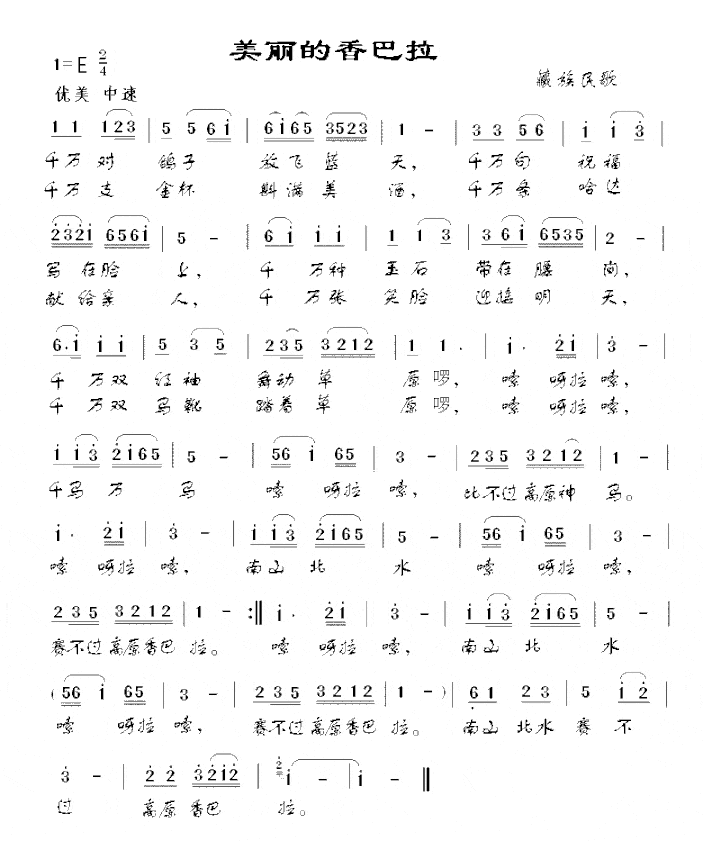 美丽的香巴拉
1=E 2/4
藏族民歌
优美 中速
1 1 1 2 3 | 5 5 6 i | 6 i 6 5 3 5 2 3 | 1 - | 3 3 5 6 | i i 3 |
千万对 鸽子 放飞蓝 天， 千万句 祝福
千万支 金杯 斟满美 酒， 千万条 哈达
2 3 2 i 6 5 6 i | 5 - | 6 i i i | i i 3 | 3 6 i 6 5 3 5 | 2 - |
写在脸 上， 千 万种 玉石 带在腰 间，
献给亲 人， 千 万张 笑脸 迎接明 天，
6 . i i i | 5 3 5 | 2 3 5 3 2 1 2 | 1 1 . | i . 2 i | 3 - |
千 万双 红袖 舞动草 原啰， 嗦 呀拉嗦，
千 万双 马靴 踏着草 原啰， 嗦 呀拉嗦，
i i 3 2 i 6 5 | 5 - | 5 6 i 6 5 | 3 - | 2 3 5 3 2 1 2 | 1 - |
千马万 马 嗦 呀拉嗦， 比不过高原神 马。
i . 2 i | 3 - | i i 3 2 i 6 5 | 5 - | 5 6 i 6 5 | 3 - |
嗦 呀拉嗦， 南山北 水 嗦 呀拉嗦，
2 3 5 3 2 1 2 | 1 - :‖ i . 2 i | 3 - | i i 3 2 i 6 5 | 5 - |
赛不过高原香巴 拉。 嗦 呀拉嗦， 南山北 水
( 5 6 i 6 5 | 3 - | 2 3 5 3 2 1 2 | 1 - ) | 6 1 2 3 | 5 i 2 |
嗦 呀拉嗦， 赛不过高原香巴 拉。 南山北水赛 不
3 - | 2 2 3 2 i 2 | 2 i - | i - ‖
过 高原香巴 拉。